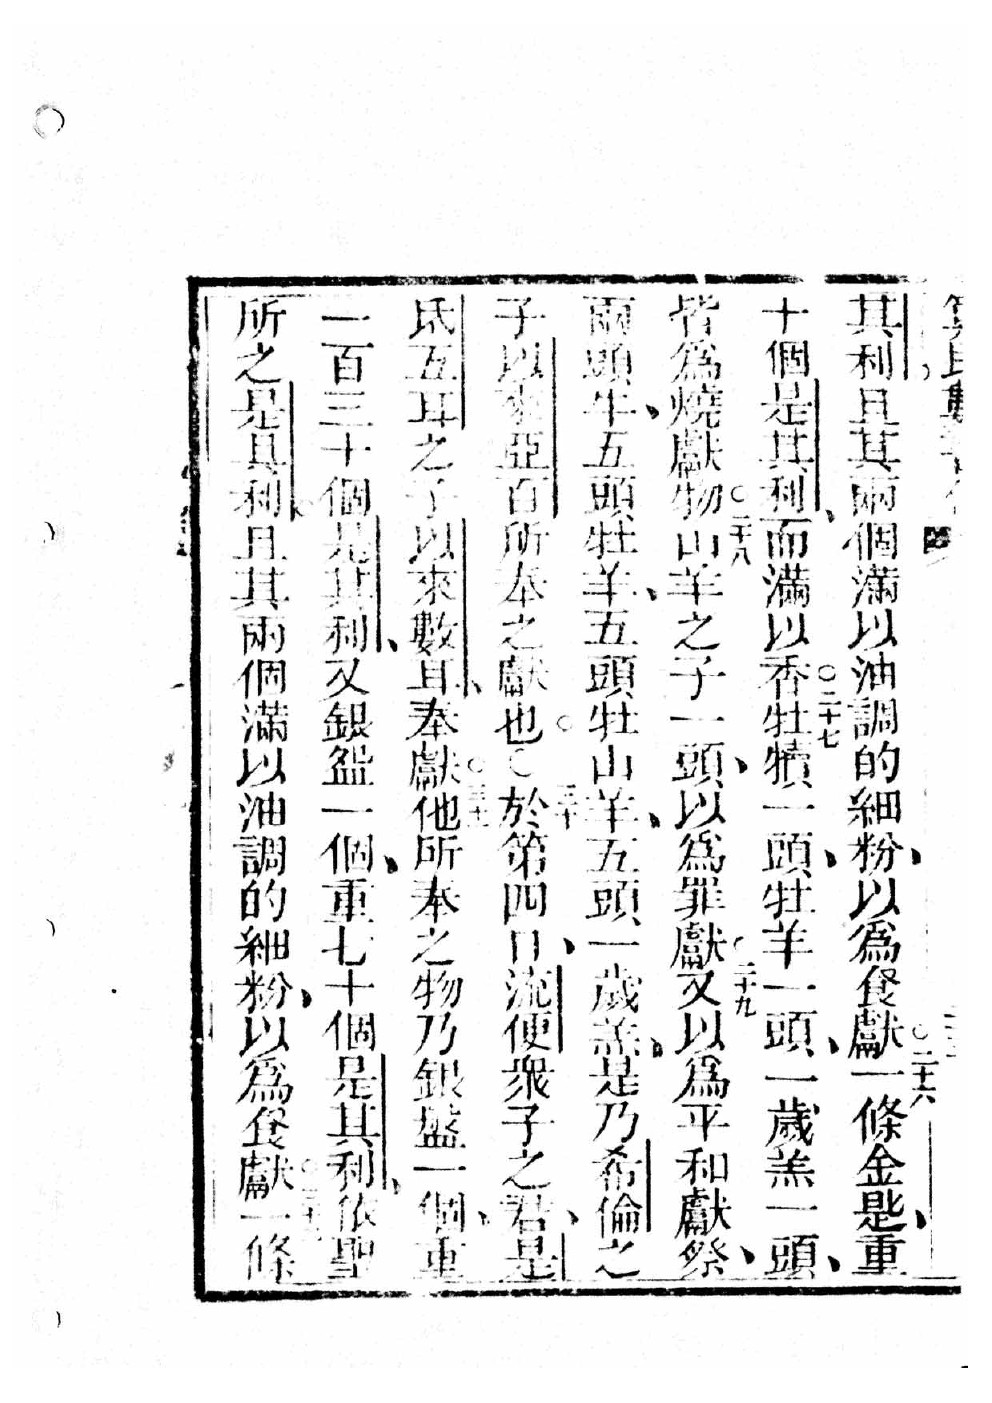 其利且其兩個滿以油調的細粉、以爲餐獻○二十六一條金匙、重
十個是其利、而滿以香○二十七牡犢一頭、牡羊一頭、一歲羔一頭、
皆爲燒獻物○二十八山羊之子一頭、以爲罪獻○二十九又以爲平和獻祭、
兩頭牛、五頭牡羊、五頭牡山羊、五頭一歲羔、是乃希倫之
子以來亞百所奉之獻也○○三十於第四日、流便衆子之君、是
氐五耳之子以來數耳、奉獻○三十一他所奉之物乃銀盤一個、重
一百三十個是其利、又銀盌一個、重七十個是其利、依聖
所之是其利、且其兩個滿以油調的細粉、以爲餐獻○三十二一條